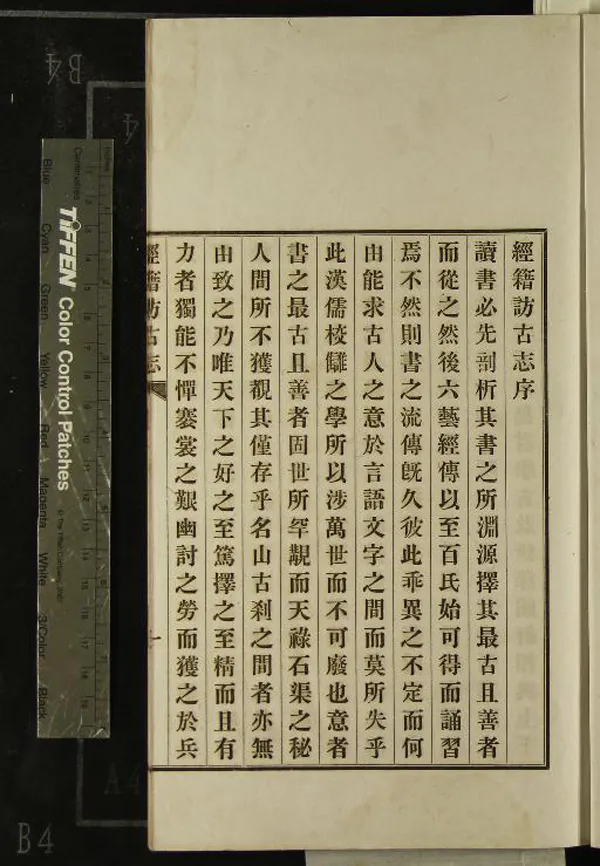 經籍訪古志序
讀書必先剖析其書之所淵源擇其最古且善者
而從之然後六藝經傳以至百氏始可得而誦習
焉不然則書之流傳旣久彼此乖異之不定而何
由能求古人之意於言語文字之間而莫所失乎
此漢儒校讎之學所以涉萬世而不可廢也意者
書之最古且善者固世所罕覯而天祿石渠之秘
人間所不獲覩其僅存乎名山古刹之間者亦無
由致之乃唯天下之好之至篤擇之至精而且有
力者獨能不憚褰裳之艱幽討之勞而獲之於兵
經籍訪古志
一
TIFFEN Color Control Patches
Centimetres
Inches
Blue
Cyan
Green
Yellow
Red
Magenta
White
3/Color
Black
B4
4
A4
B4